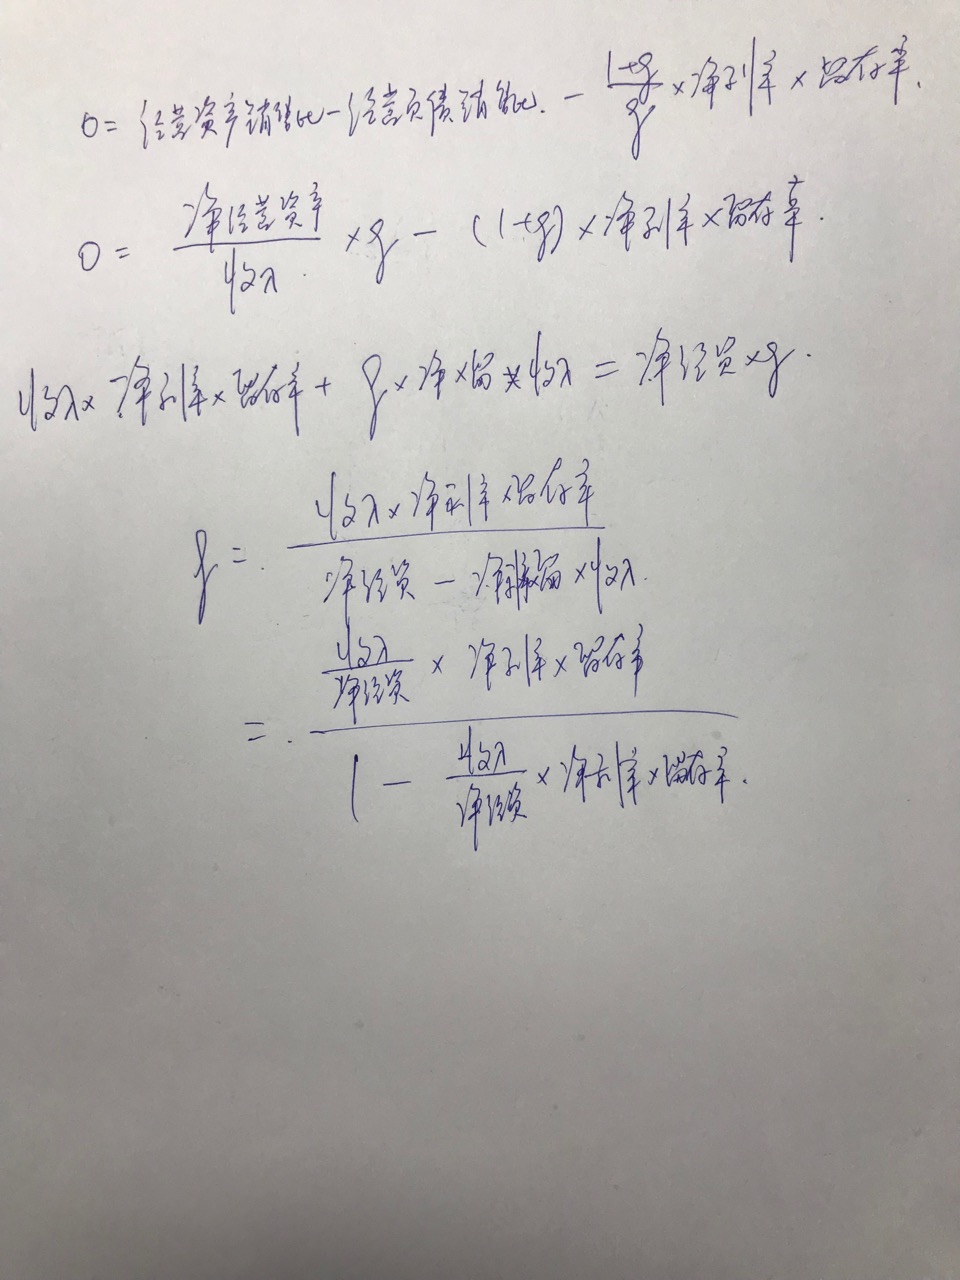 0 = 经营资产销售比 - 经营负债销售比 - (1+g)/g × 净利率 × 留存率.
0 = 净经营资产/收入 × g - (1+g) × 净利率 × 留存率.
收入 × 净利率 × 留存率 + g × 净 × 留 × 收入 = 净经资 × g.
g = 收入 × 净利率 × 留存率 / 净经资 - 净利率留 × 收入.
= 收入/净经资 × 净利率 × 留存率 / 1 - 收入/净经资 × 净利率 × 留存率.